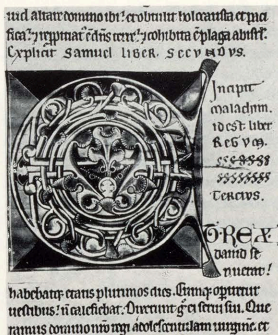 uid altare domino ibi: et obtulit holocausta et paci
fica: et repitiat̄ ē dn̄s terre: et cohibita ē plaga ab isrł.
Explicit Samuel liber. Secundus.
Incipit
maladym
idest liber
Regum.
Tercius.
O. REX
david se
nuerat:
habebatq; etatis plurimos dies. Cumq; operiretur
uestibus: n̄ calefiebat. Dixerunt g̊ ei serui sui. Que
ramus domino nr̄o regi adolescentulam uirginē. et